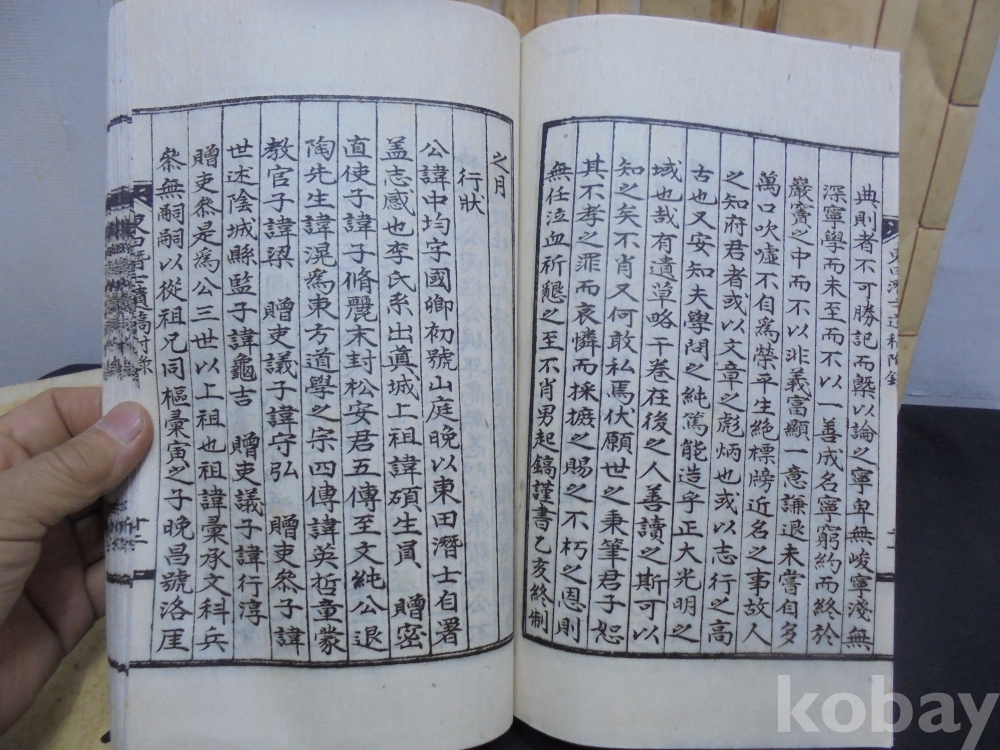 典則者不可勝記而槩以論之寧卑無峻寧淺無
深寧學而未至而不以一善成名寧窮約而終於
巖竇之中而不以非義富顯一意謙退未嘗自多
萬口吹噓不自爲榮平生絶標牓近名之事故人
之知府君者或以文章之彪炳也或以志行之高
古也又安知夫學問之純篤能造乎正大光明之
域也哉有遺草略干卷在後之人善讀之斯可以
知之矣不肖又何敢私焉伏願世之秉筆君子恕
其不孝之罪而哀憐而採摭之賜之不朽之恩則
無任泣血祈懇之至不肖男起鎬謹書乙亥終制
之月
行狀
公諱中均字國卿初號山庭晩以東田潛士自署
盖志感也李氏系出眞城上祖諱碩生員 贈密
直使子諱子脩麗末封松安君五傳至文純公退
陶先生諱滉爲東方道學之宗四傳諱英哲童蒙
教官子諱樑 贈吏議子諱守弘 贈吏叅子諱
世述陰城縣監子諱龜吉 贈吏議子諱行淳
贈吏叅是爲公三世以上祖也祖諱彙承文科兵
叅無嗣嗣以從祖兄同樞彙寅之子晩昌號洛厓
十二
kobay